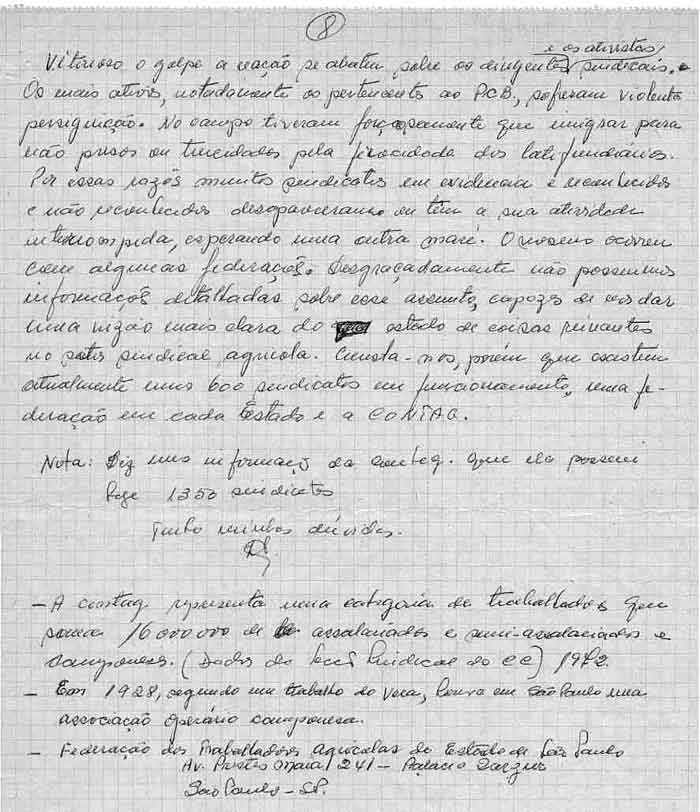 8
e os ativistas
Vitorioso o golpe a reação se abateu sobre os dirigentes sindicais.
Os mais ativos, notadamente os pertencentes ao PCB, sofreram violenta
perseguição. No campo tiveram forçosamente que emigrar para
não presos ou trucidados pela ferocidade dos latifundiários.
Por essas razões muitos sindicatos em evidencia e reconhecidos
e não reconhecidos desapareceram ou têm a sua atividade
interrompida, esperando uma outra maré. O mesmo ocorreu
com algumas federações. Desgraçadamente não possuimos
informações detalhadas sobre esse assunto, capazes de nos dar
uma visão mais clara do estado de coisas reinantes
no setor sindical agrícola. Consta-nos, porém que existem
atualmente uns 600 sindicatos em funcionamento, uma fe-
deração em cada Estado e a CONTAG.
Nota: Diz uma informaç da Contag. que ela possui
hoje 1350 sindicatos
Tenho minhas dúvidas.
– A contag representa uma categoria de trabalhadores que
soma 16000000 de assalariados e semi-assalariados e
camponeses. (Dados da Secç Sindical do CC) 1972.
– Em 1928, segundo um trabalho do Vera, houve em São Paulo uma
associação operário camponesa.
– Federação dos Trabalhadores Agricolas do Estado de São Paulo
Av. Prestes Maia 241 – Palacio
São Paulo – SP.